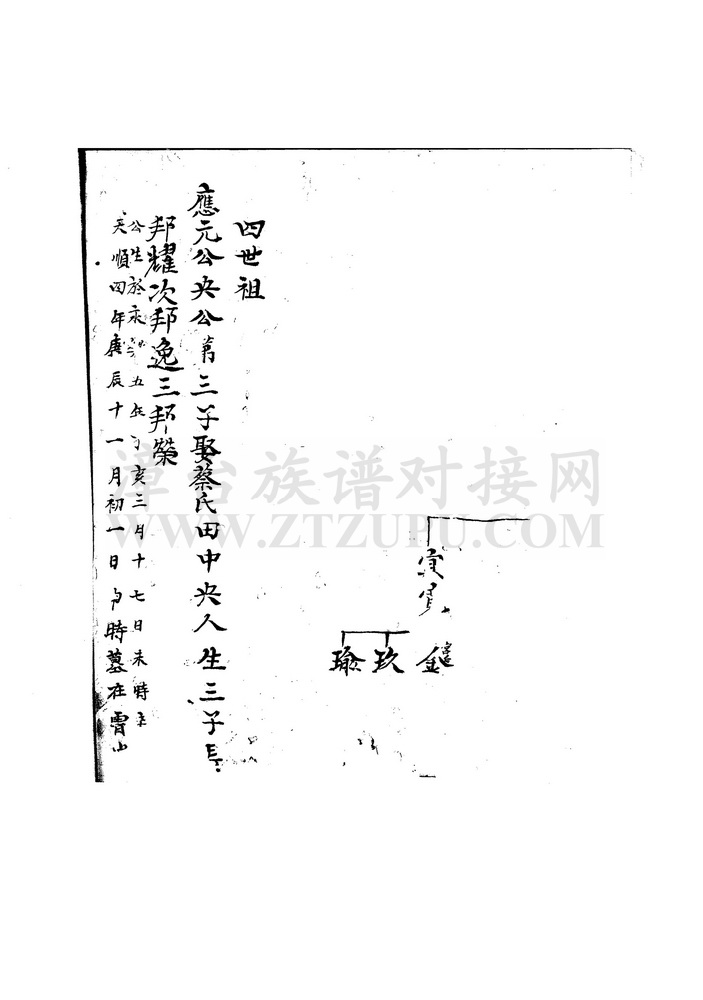 鑑
玖
瑜
四世祖
應元公央公第三子娶蔡氏田中央人生三子長
邦耀次邦逸三邦榮
公生於永五年丁亥三月十七日未時
天順四年庚辰十一月初一日時墓在霄山
譚台族谱对接网
WWW.ZTZUPU.COM